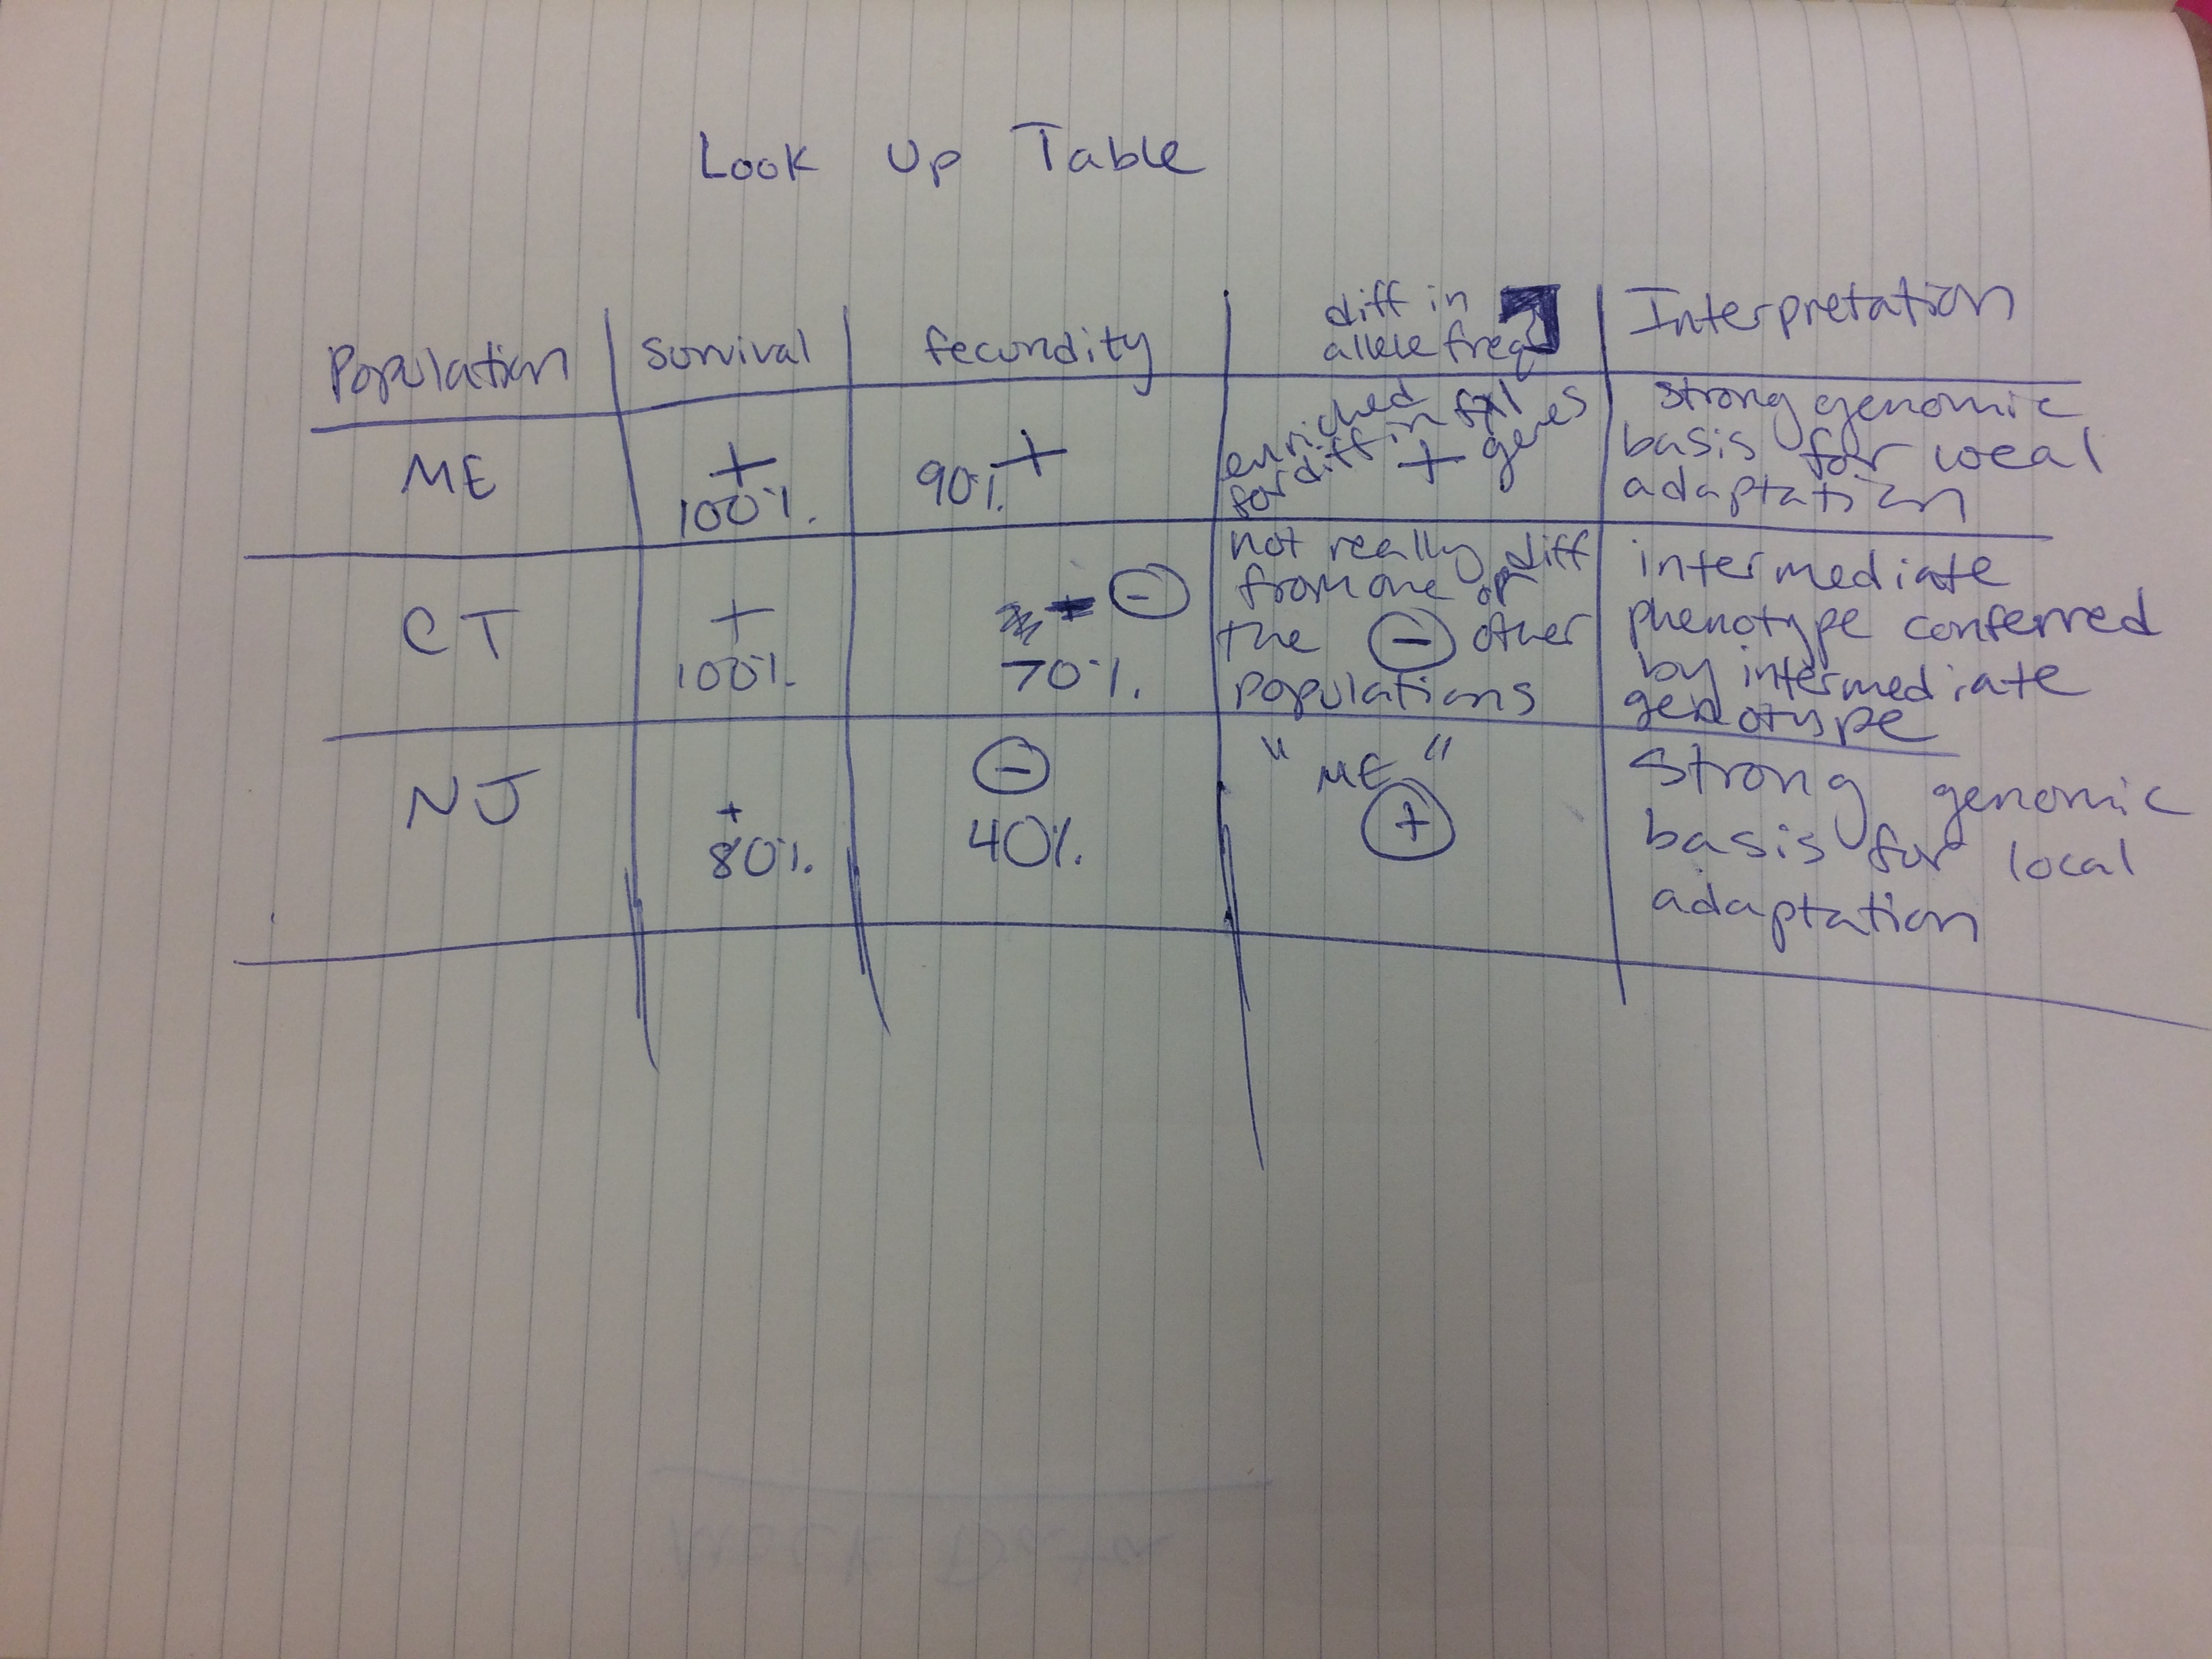 Look Up Table
Population survival fecundity diff in allele freq Interpretation
ME + 100% 90% + enriched for diff in fxl genes + strong genomic basis for local adaptation
CT + 100% - 70% not really diff from one or the - other populations intermediate phenotype conferred by intermediate genotype
NJ + 80% - 40% " ME " + Strong genomic basis for local adaptation